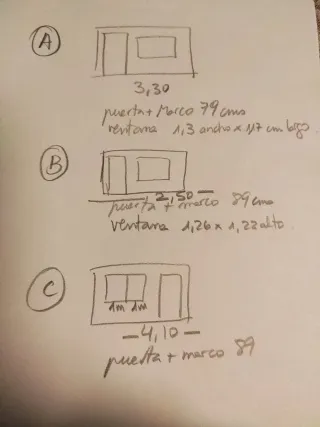 A
3,30
puerta + Marco 79 cms
ventana 1,3 ancho x 117 cm largo.
B
2,50
puerta + marco 89 cms
ventana 1,26 x 1,22 alto.
C
1m 1m
4,10
puerta + marco 89